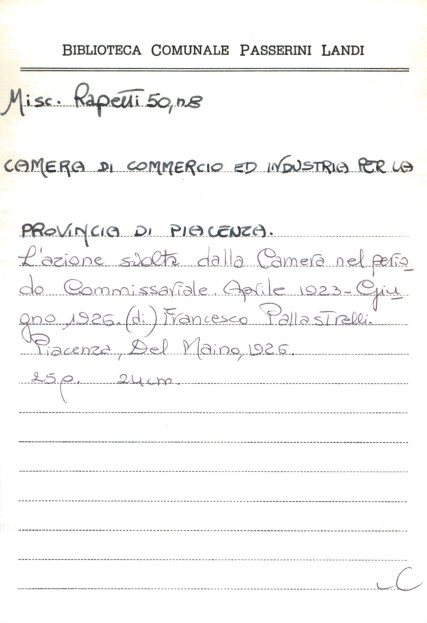 BIBLIOTECA COMUNALE PASSERINI LANDI
Misc. Rapetti 50, n.8
CAMERA DI COMMERCIO ED INDUSTRIA PER LA
PROVINCIA DI PIACENZA.
L'azione svolta dalla Camera nel perio-
do Commissariale. Aprile 1923-Giu-
gno 1926. (di) Francesco Pallastrelli.
Piacenza, Del Maino, 1926.
25 p. 24 cm.
C